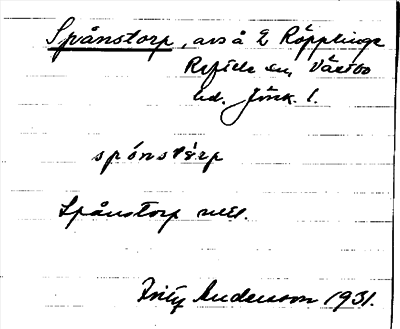 Spånstorp, avs å E Röpplinge
Ryfiele sn, Västbo
hd. Jönk. l.
spónstèrp
Spånstorp
Fritz Andersson 1931.